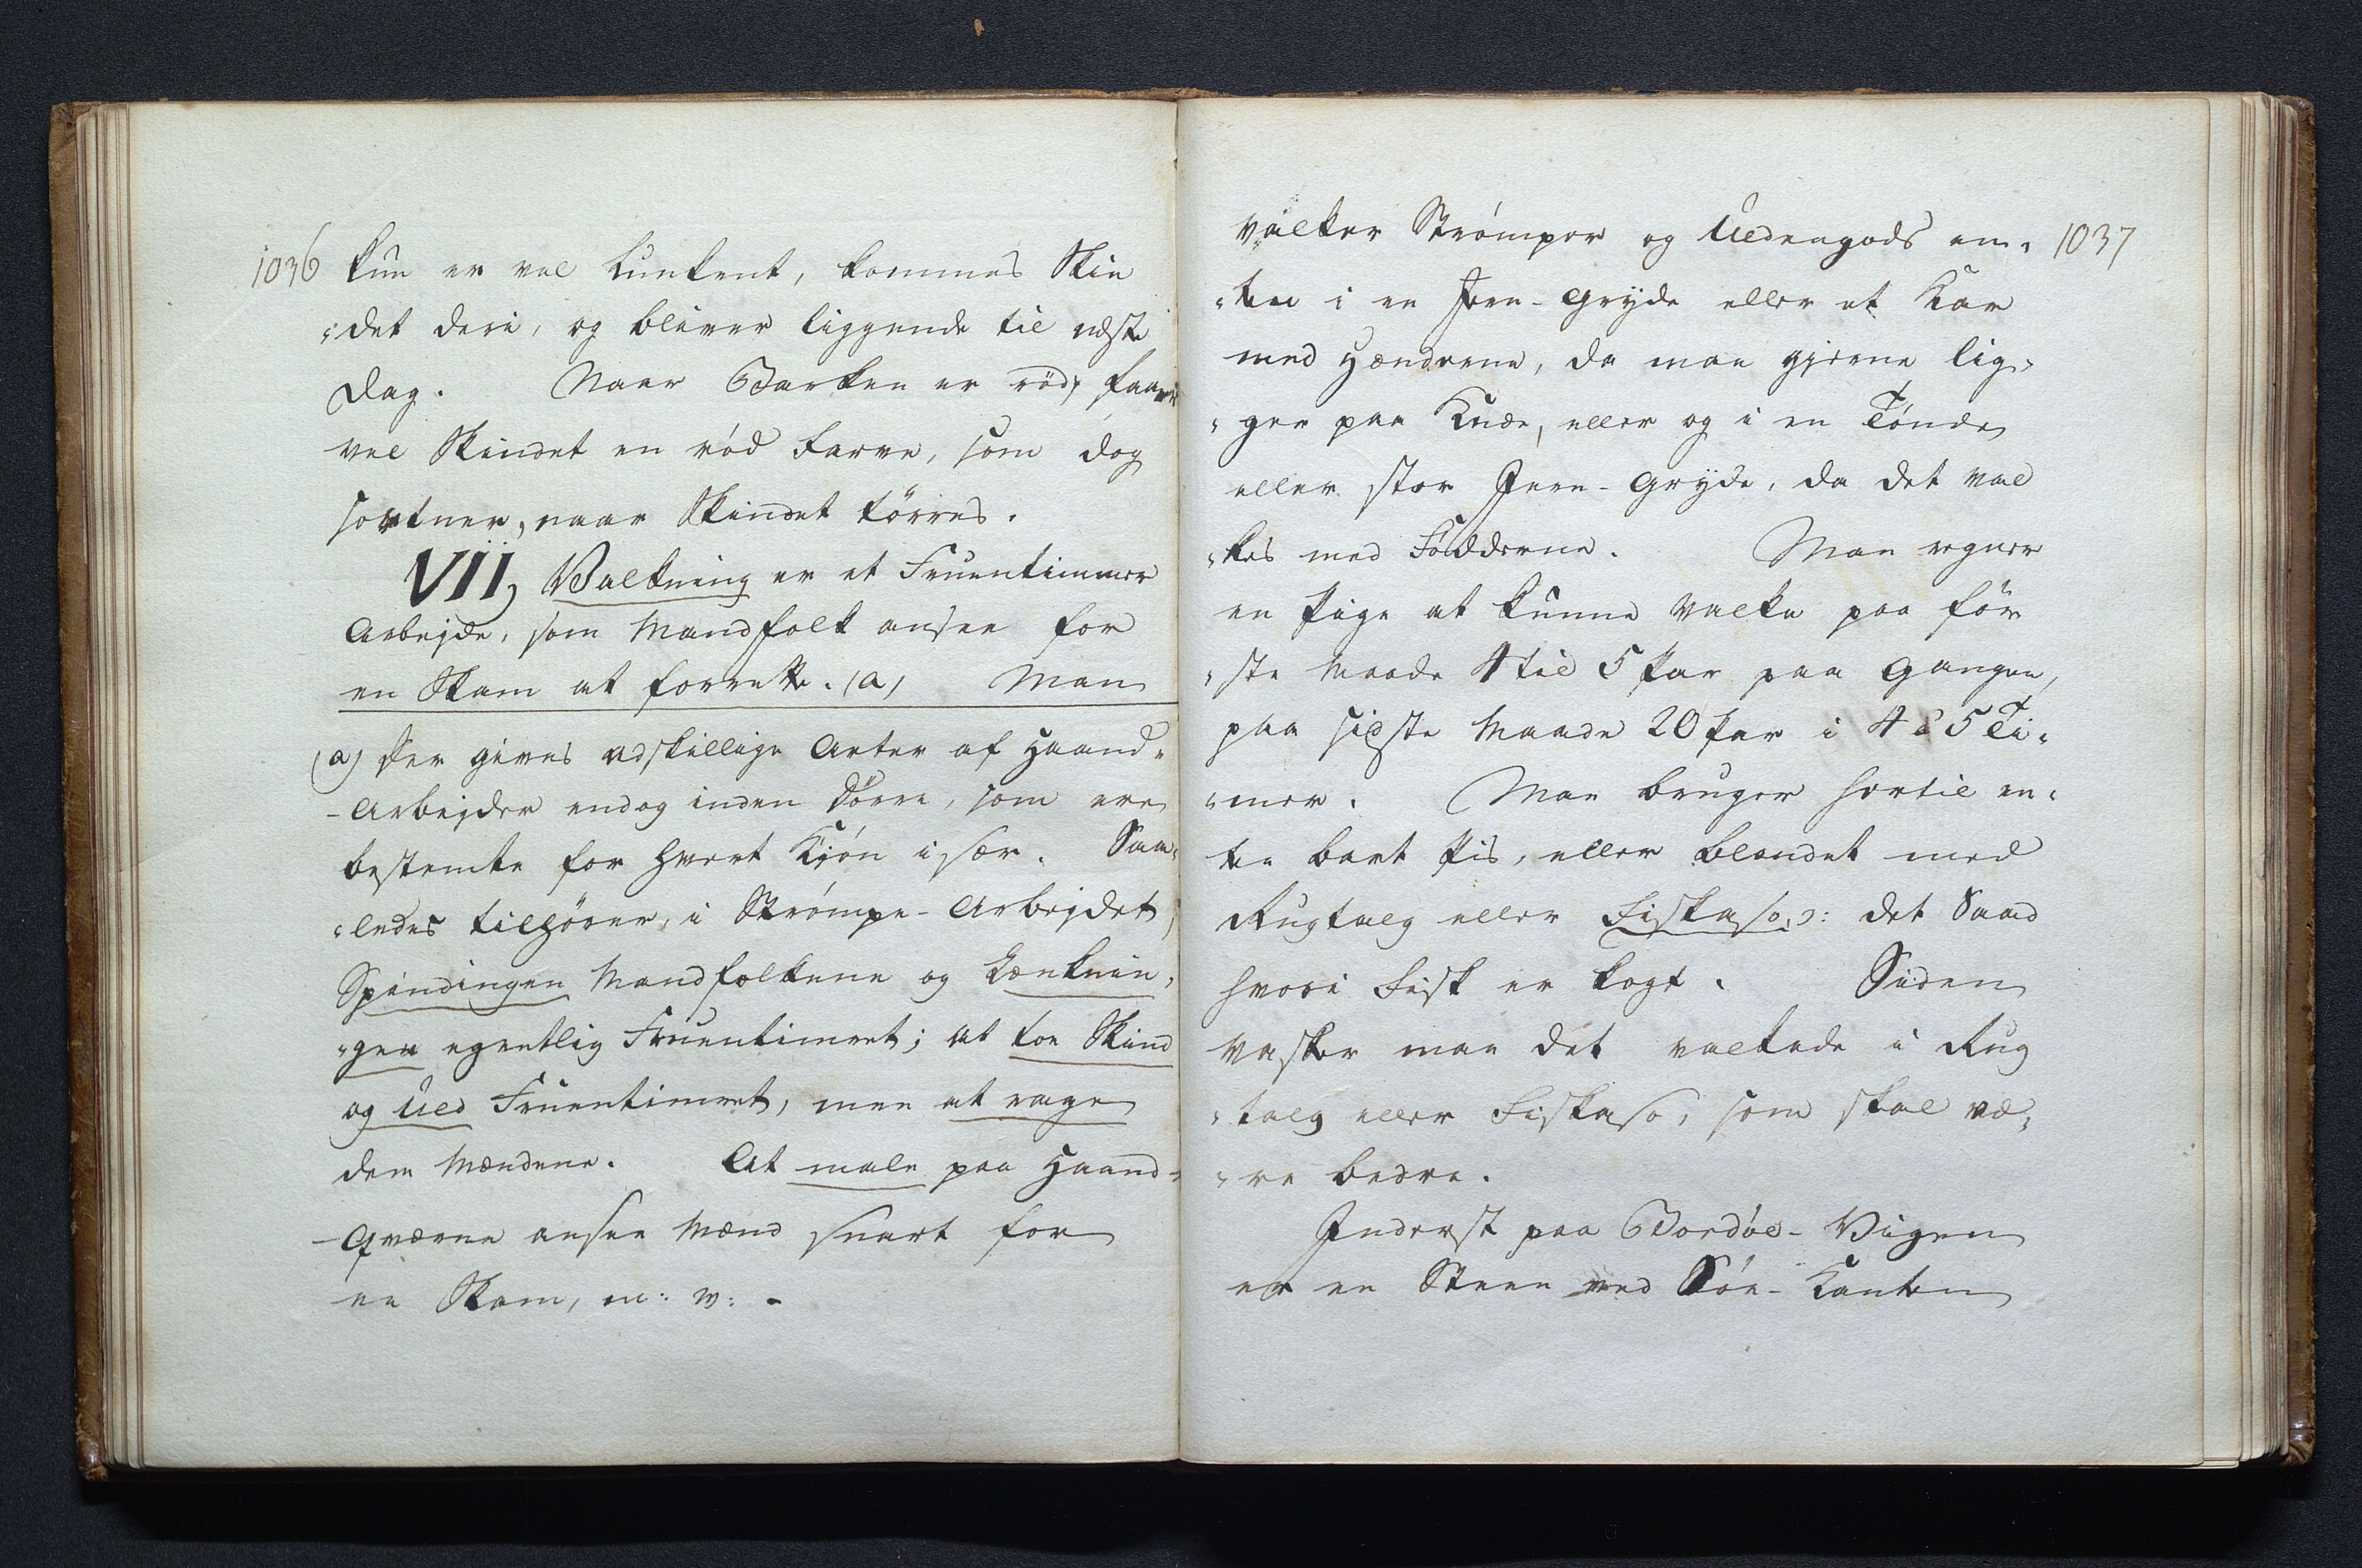 1036
kun er vel lunkent, kommes Skin
"det deri, og bliver liggende til næste
Dag. Naar Barken er röd, faaer
vel Skindet en röd Farve, som dog
sortner, naar Skindet törres.
VII, Valkning er et Fruentimmer
Arbejde, som Mandfolk ansee for
en Skam at forrette. (a) Man
(a) Der gives adskillige Arter af Haand-
-Arbejder endog inden Dörre, som ere
bestemte for hvert Kjön især. Saa-
"ledes tilhörer, i Strömpe-Arbejdet,
Spindingen Mandfolkene og Lænknin-
"gen egentlig Fruentimret; at toe Skind
og Uld Fruentimret, men at rage
dem Mændene. At male paa Haand-
-Qværne ansee Mænd snart for
en Skam, m: v: -
1037
valker Strömper og Uldengods en-
"ten i en Jern-Gryde eller et Kar
med Hænderne, da man gjerne lig-
"ger paa Knæe, eller og i en Tönde
eller stor Jern-Gryde, da det val
"kes med Födderne. Man regner
en Pige at kunne valke paa för
"ste Maade 4 til 5 Par paa Gangen,
paa sidste Maade 20 Par i 4 à 5 Ti-
"mer. Man bruger hertil en-
ten bart Pis, eller blandet med
Rugtalg eller Fiskaso, ɔ: det Vand
hvori Fisk er kogt. Siden
vasker man det valkede i Rug
"talg eller Fiskaso, som skal væ-
"re bedre.
Inderst paa Bordöe-Vigen
er en Steen ved Söe-Kanten